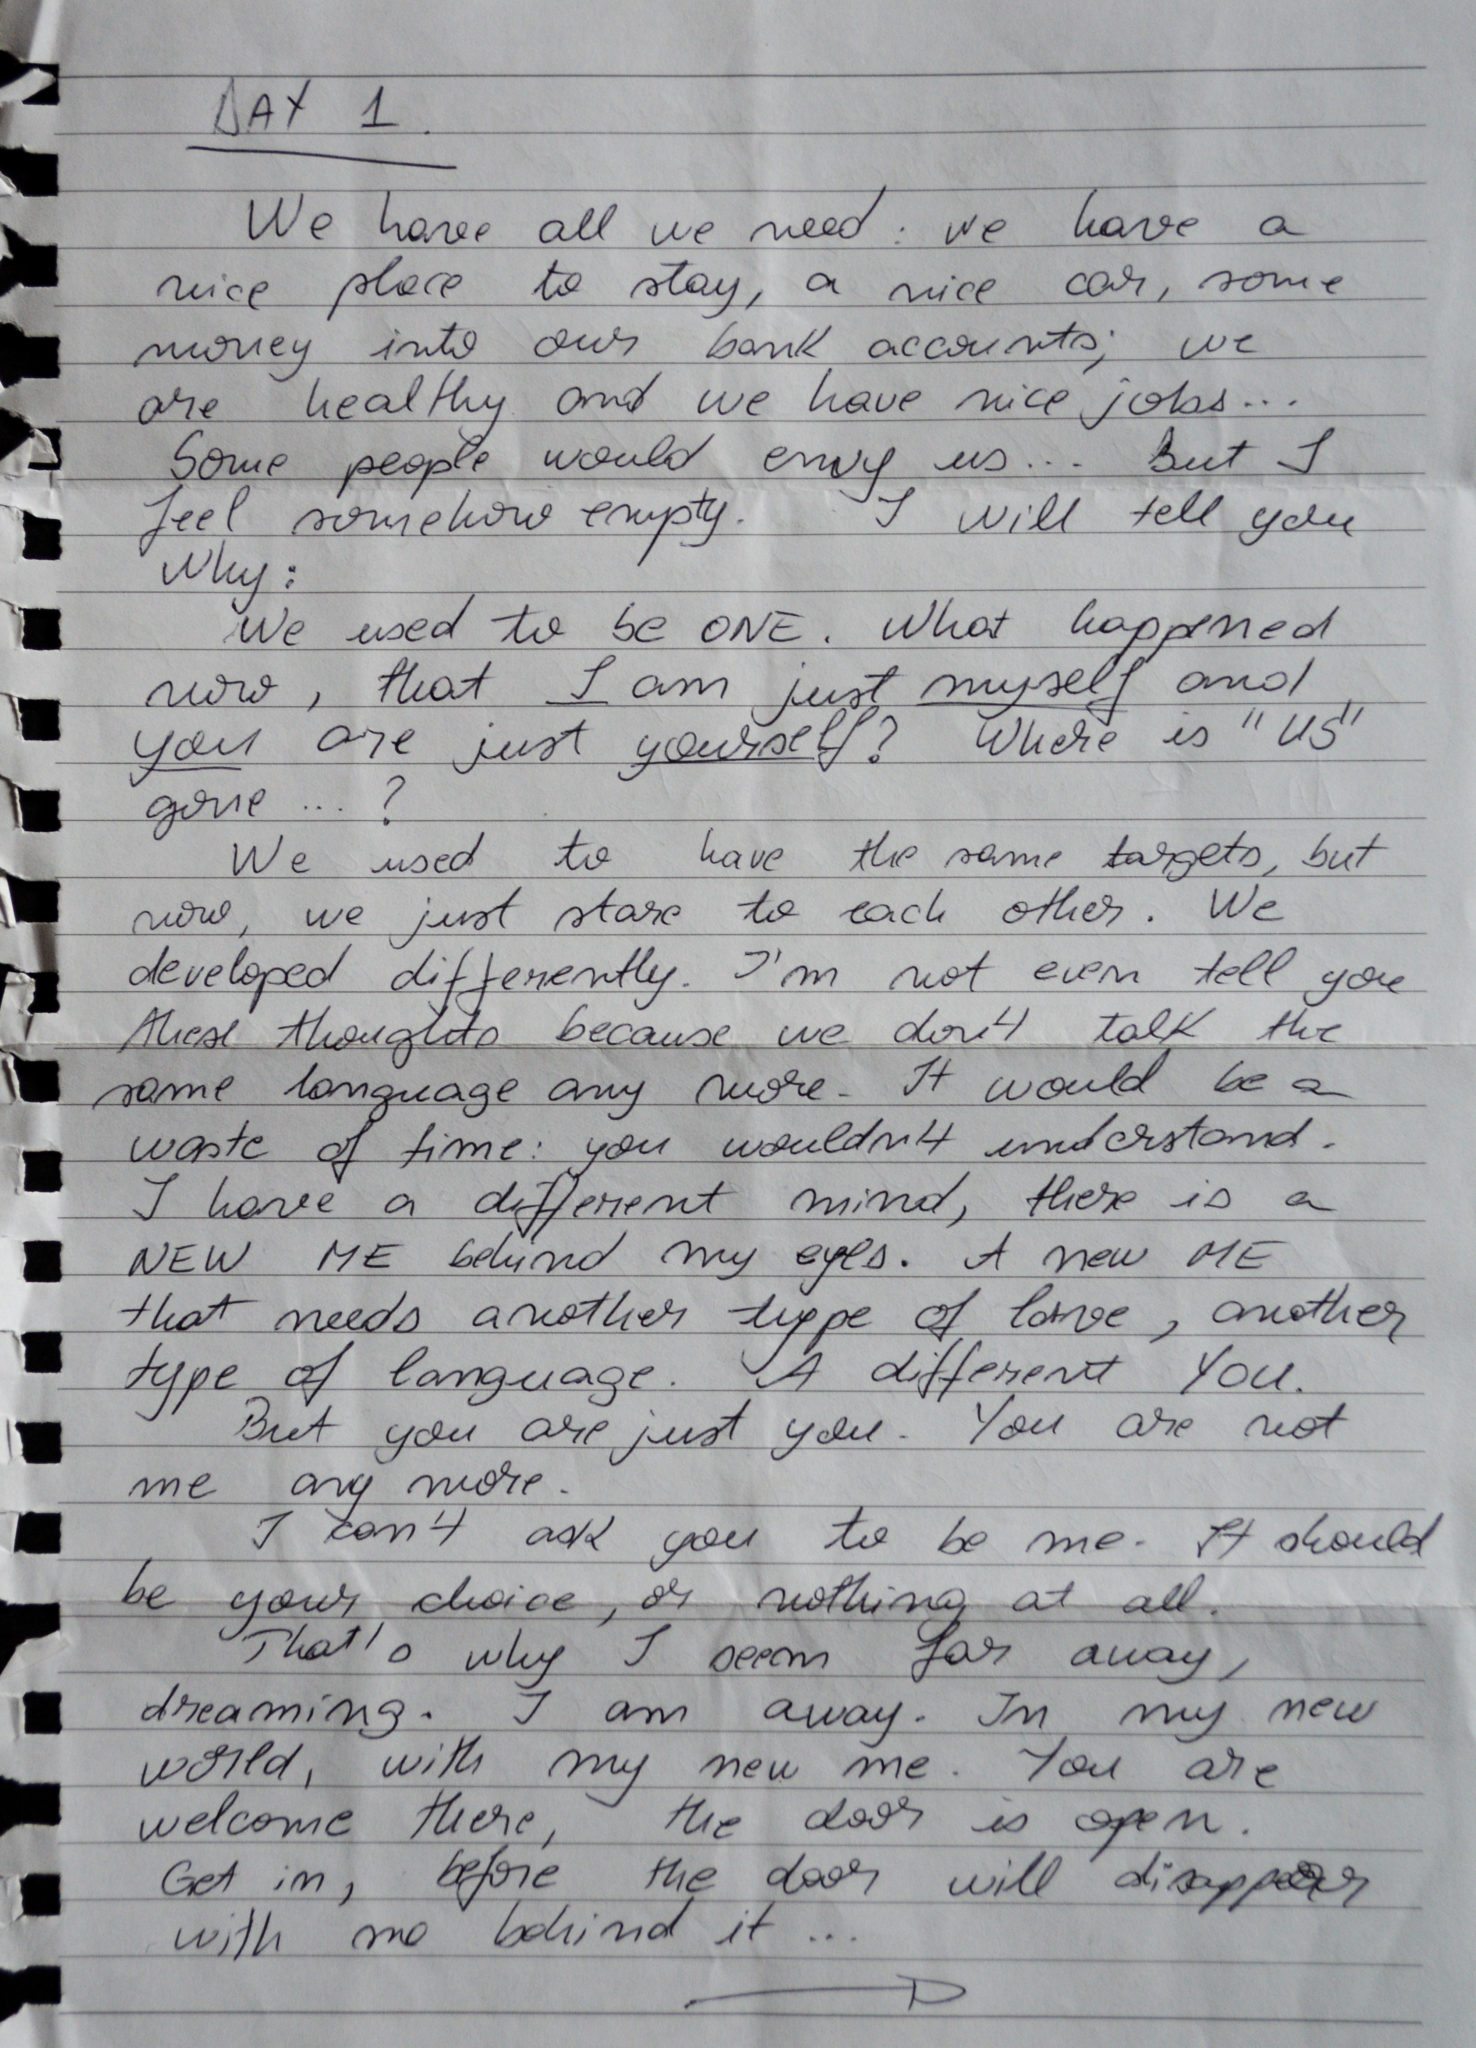 DAY 1.
We have all we need: we have a
nice place to stay, a nice car, some
money into our bank accounts; we
are healthy and we have nice jobs...
Some people would envy us... But I
feel somehow empty. I will tell you
why:
We used to be ONE. What happened
now, that I am just myself and
you are just yourself? Where is "US"
gone ...?
We used to have the same targets, but
now, we just stare to each other. We
developed differently. I'm not even tell you
these thoughts because we don't talk the
same language any more. It would be a
waste of time: you wouldn't understand.
I have a different mind, there is a
NEW ME behind my eyes. A new ME
that needs another type of love, another
type of language. A different You.
But you are just you. You are not
me any more.
I can't ask you to be me. It should
be your choice, or nothing at all.
That's why I seem far away,
dreaming. I am away. In my new
world, with my new me. You are
welcome there, the door is open.
Get in, before the door will disappear
with me behind it ...